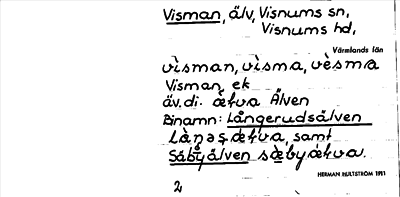 Visman, älv, Visnums sn,
Visnums hd,
Värmlands län
vìsman, vìsma, vèsma
Visman, ek
äv. di. Älven
Binamn: Långerudsälven
samt
Säbyälven
HERMAN HULTSTRÖM 1911
2